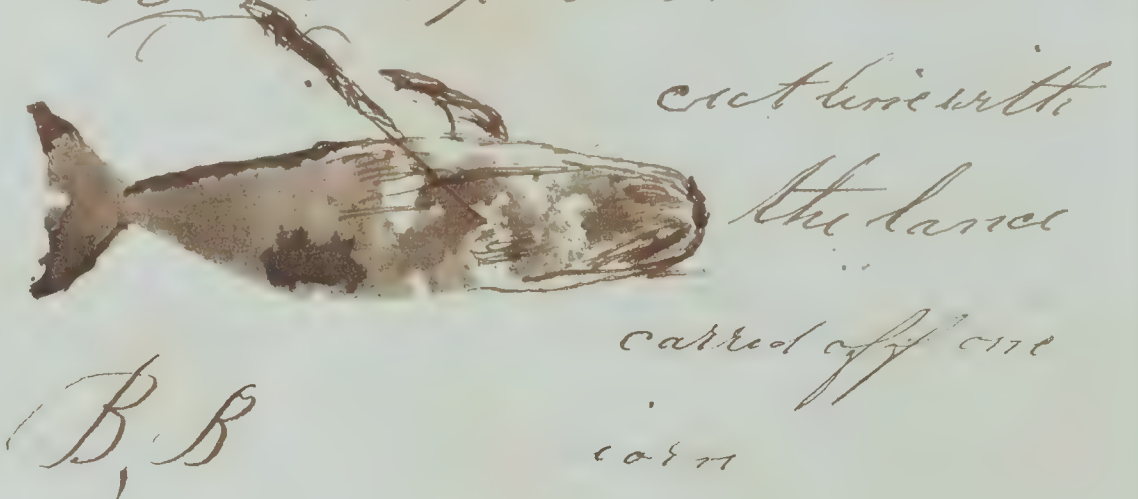 cut line with
the lance
carred off one
iorn
B, B